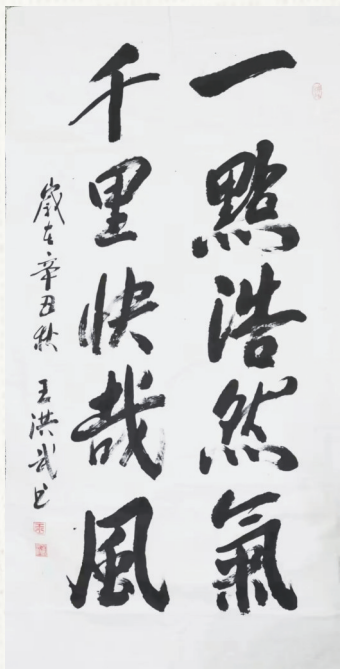 一點浩然氣
千里快哉風
歲在辛丑秋 王洪武書